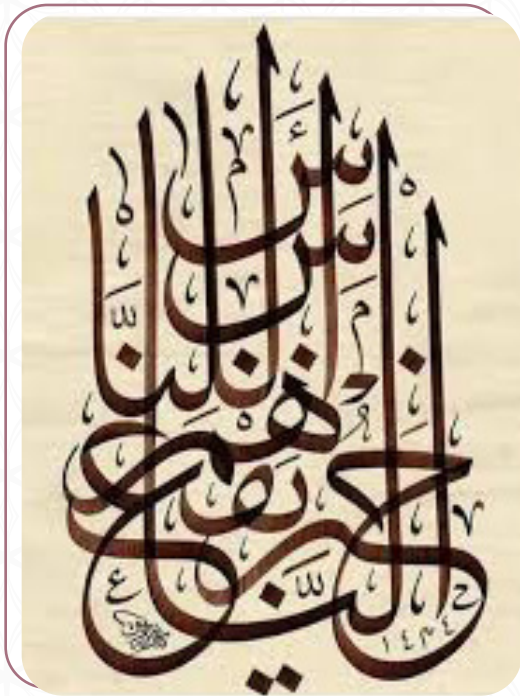 خير الناس أنفعهم للناس
١٤٣٤